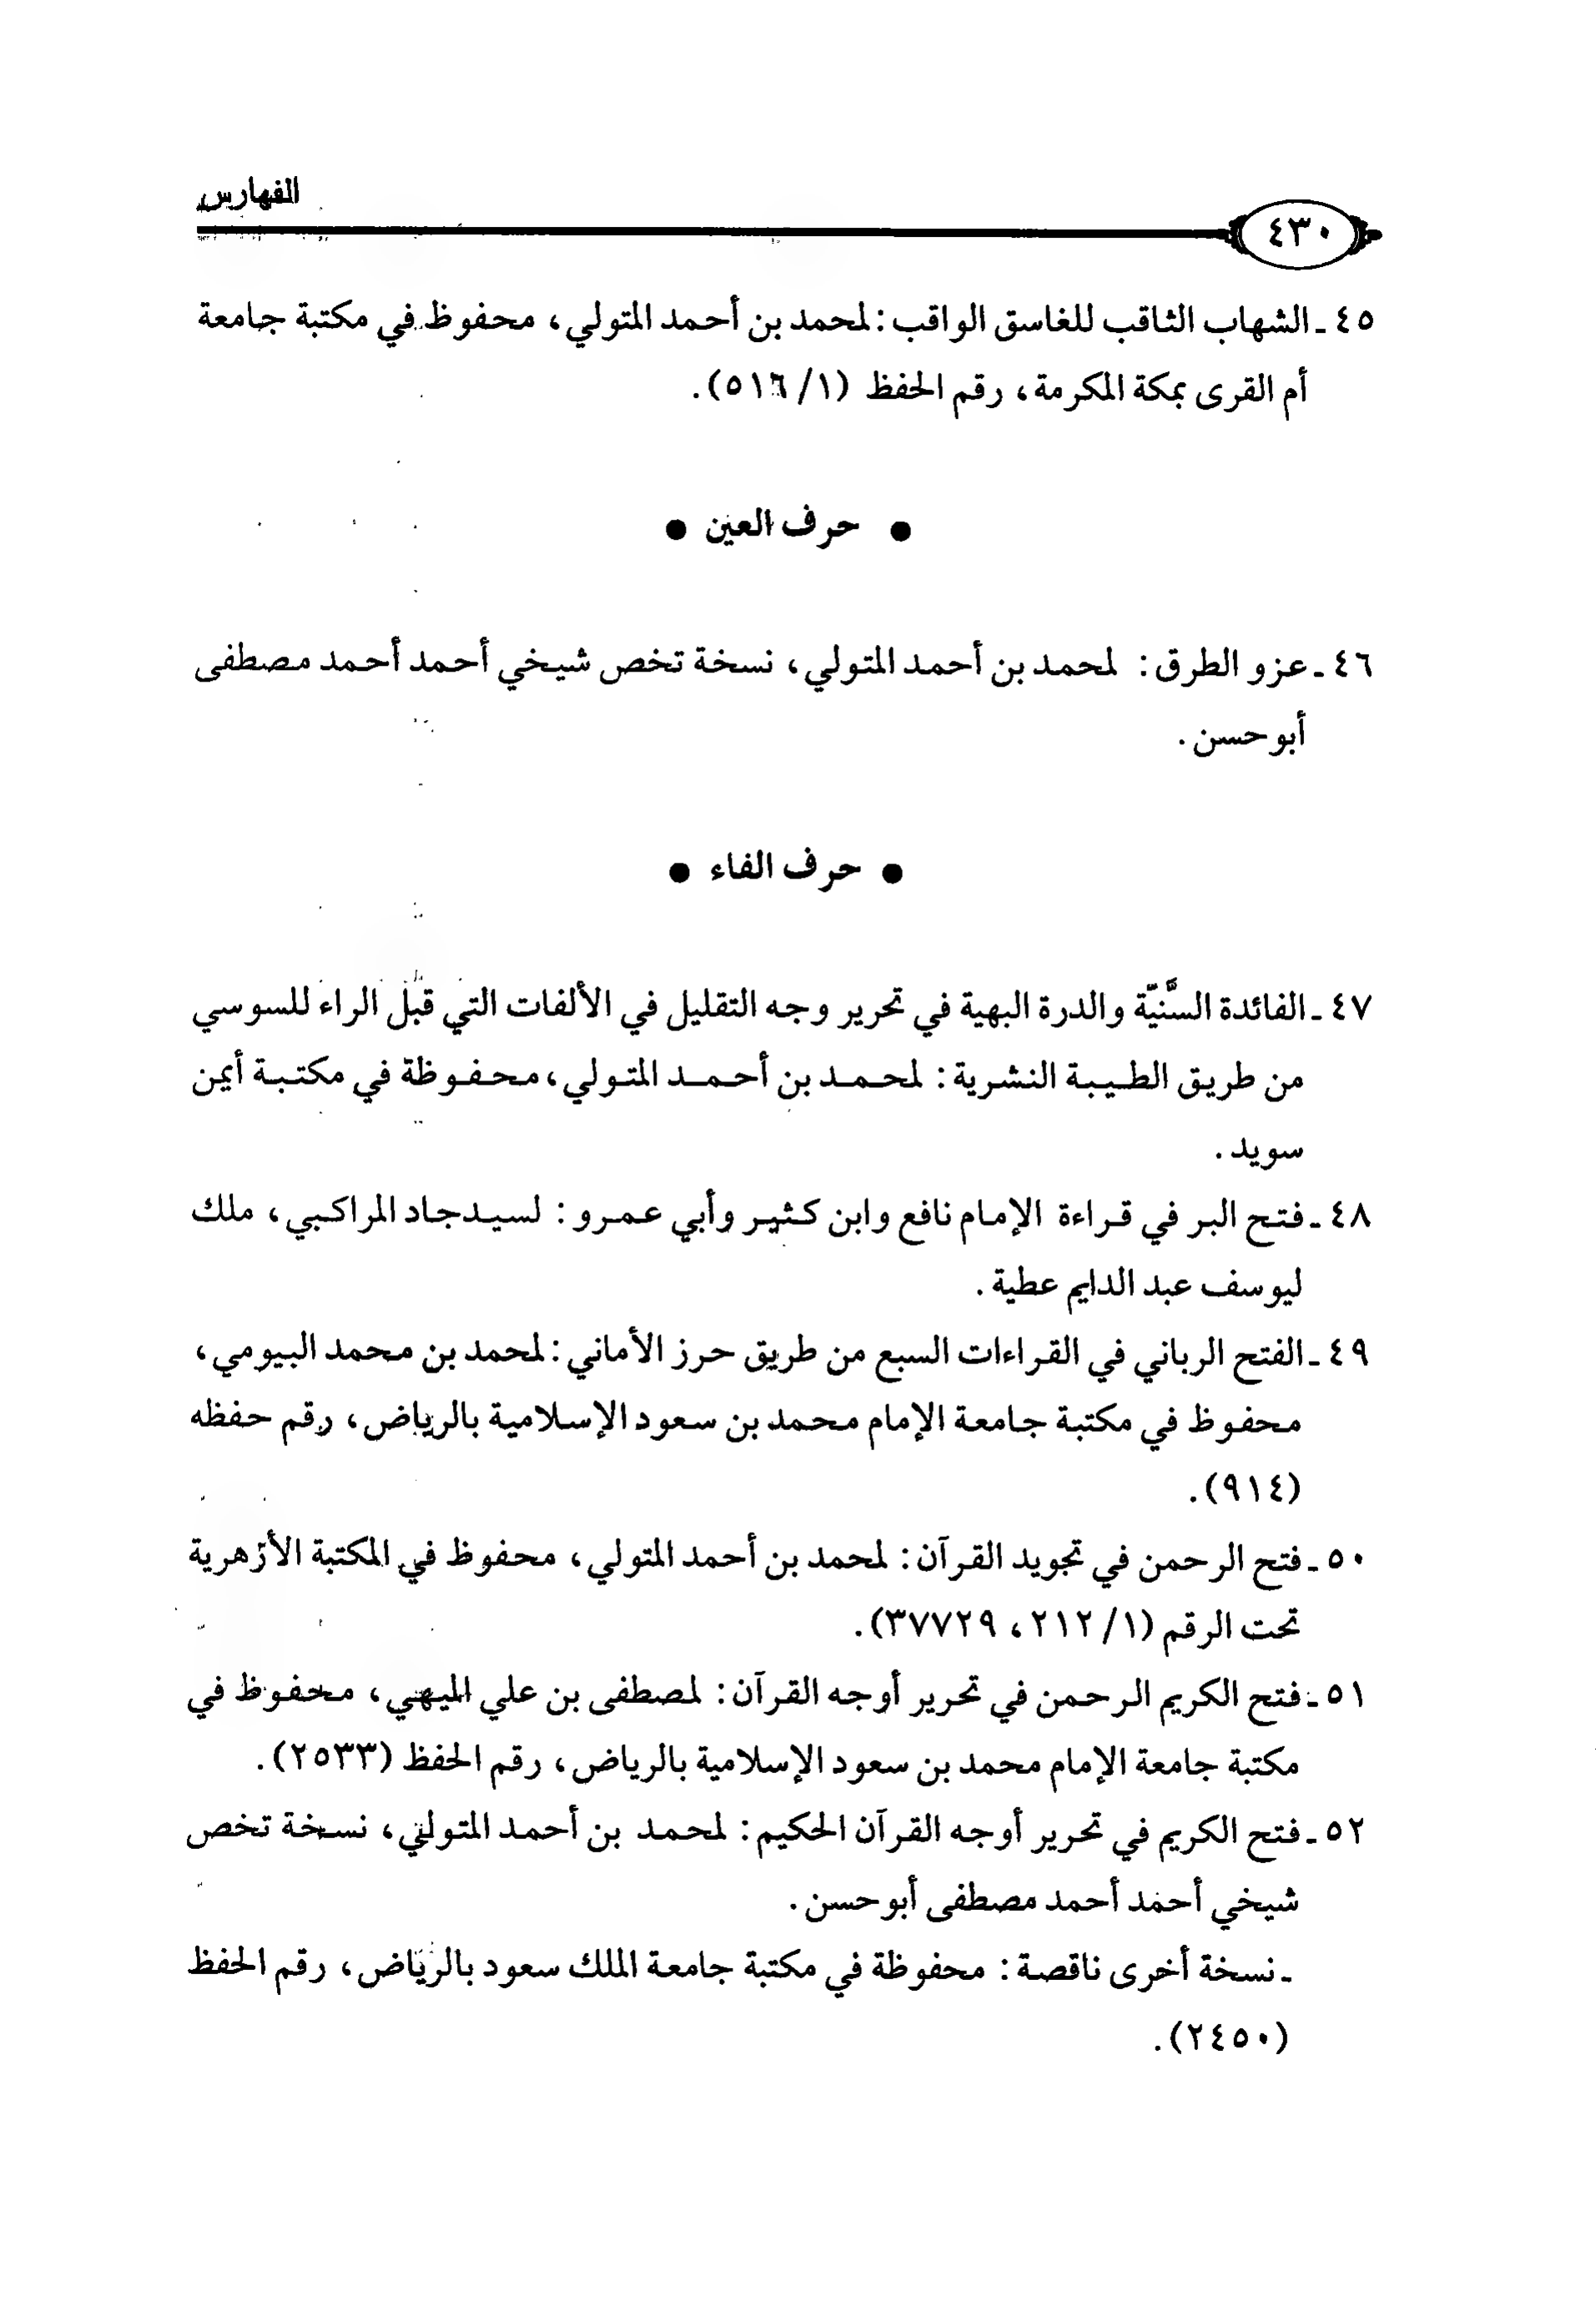 الفهارس
٤٣٠
٤٥ ـ الشهاب الثاقب للغاسق الواقب : لمحمد بن أحمد المتولي، محفوظ في مكتبة جامعة
أم القرى بمكة المكرمة، رقم الحفظ (١/ ٥١٦).
● حرف العين ●
٤٦ ـ عزو الطرق : لمحمد بن أحمد المتولي، نسخة تخص شيخي أحمد أحمد مصطفى
أبو حسن .
● حرف الفاء ●
٤٧ ـ الفائدة السَّنيّة والدرة البهية في تحرير وجه التقليل في الألفات التي قبل الراء للسوسي
من طريق الطيبة النشرية : لمحمد بن أحمد المتولي، محفوظة في مكتبة أيمن
سويد .
٤٨ ـ فتح البر في قراءة الإمام نافع وابن كثير وأبي عمرو : لسيد جاد المراكبي، ملك
ليوسف عبد الدايم عطية .
٤٩ ـ الفتح الرباني في القراءات السبع من طريق حرز الأماني : لمحمد بن محمد البيومي،
محفوظ في مكتبة جامعة الإمام محمد بن سعود الإسلامية بالرياض، رقم حفظه
(٩١٤).
٥٠ ـ فتح الرحمن في تجويد القرآن : لمحمد بن أحمد المتولي، محفوظ في المكتبة الأزهرية
تحت الرقم (١/ ٢١٢، ٣٧٧٢٩).
٥١ ـ فتح الكريم الرحمن في تحرير أوجه القرآن : لمصطفى بن علي الميهي، محفوظ في
مكتبة جامعة الإمام محمد بن سعود الإسلامية بالرياض، رقم الحفظ (٢٥٣٣).
٥٢ ـ فتح الكريم في تحرير أوجه القرآن الحكيم : لمحمد بن أحمد المتولي، نسخة تخص
شيخي أحمد أحمد مصطفى أبو حسن .
ـ نسخة أخرى ناقصة : محفوظة في مكتبة جامعة الملك سعود بالرياض، رقم الحفظ
(٢٤٥٠).